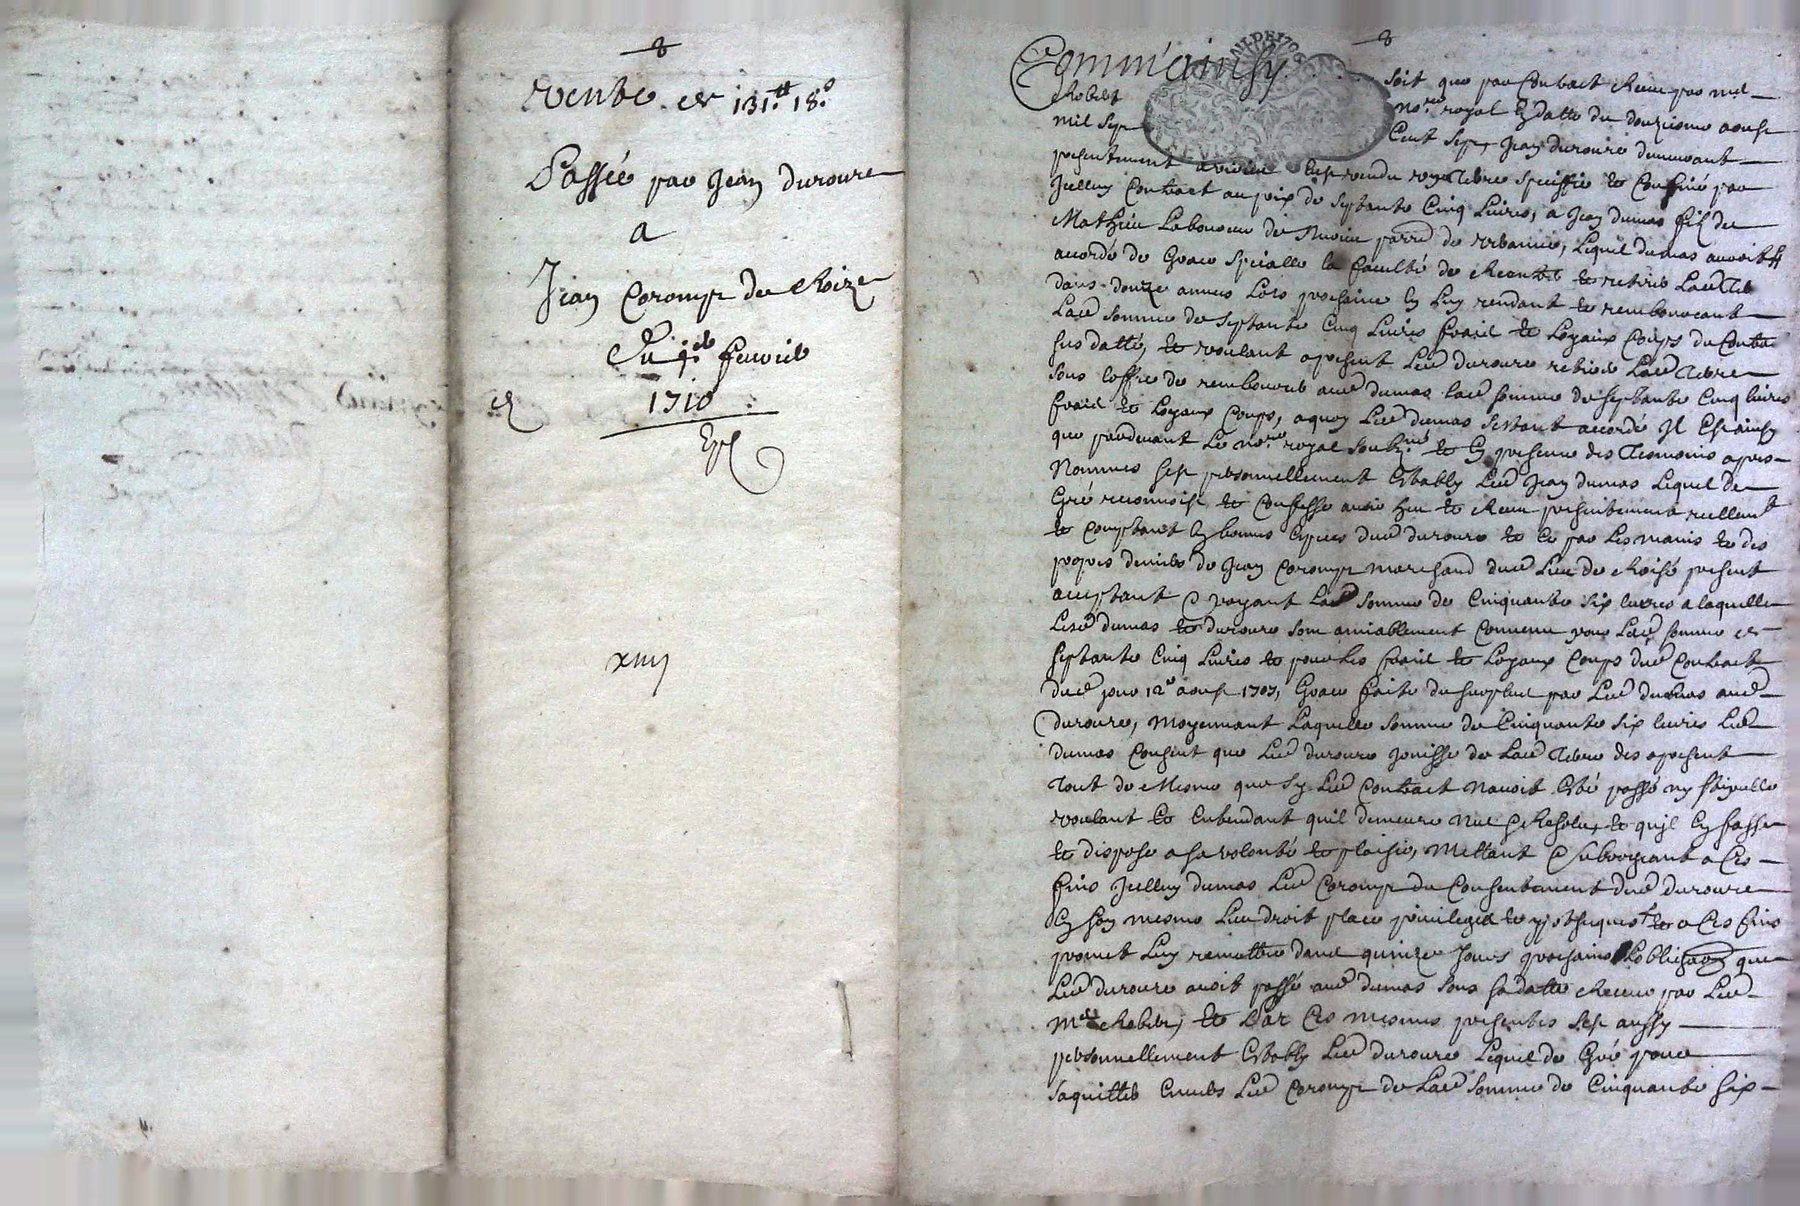 8
vente de 131.tt 18.s
Passée par Jean duroure
A
Jean Coromp de Roize
Du feurier
1710
xiiij
8
Comm'ainsy soit que par Contract Receu par me
Robert no.re royal En datte du douziesme aoust
mil sept Cent sept, Jean duroure demeurant
presentement a viviers eust vendu Terre speciffie et Confiné par
Jcelluy Contract au prix de septante Cinq Liures, a Jean dumas filz de
Mathieu Laboureur de parr.e de, Lequel dumas auroit
accordé de Grace specialle la faculté de Rachat et retirer Lad. Terre
dans douze années Lors prochaine En Luy rendant et remboursant
Lad. somme de septante Cinq Liures fraid et Loyaux Coups du Contra
sus datté, et voulant apresent Led. duroure retirer Lad. Terre
sous L'offre de rembourser aud. dumas lad. somme de septante Cinq liures
fraid et Loyaux Coups, a quoy Led. dumas s'estant accordé Jl Est ainsy
que pardeuant Le no.re royal soubz.né et En presence des Tesmoins apres
Nommes s'est personnellement Estably Led. Jean dumas Lequel de
Gré reconnoist et Confesse auoir heu et Receu presentement reellem.t
et Comptant En bonnes Especes dud. duroure et Ce par Les mains et des
propres deniers de Jean Coromp marchand dud. Lieu de Roisé present
acceptant Et payant Lad. somme de Cinquante six liures a laquelle
Lesd. dumas et duroure sont amiablement Conuenu pour Lad. somme de
septante Cinq Liures et pour Les fraid et Loyaux Coups dud. Contract
dud. jour 12.e aoust 1707, Grace faite du surplus par Led. dumas aud.
duroure, moyennant Laquelle somme de Cinquante six liures Led.
dumas Consent que Led. duroure jouisse de Lad. Terre des apresent
Tout de Mesme que sy Led. Contract Nauoit Esté passé ny stipulle
voulant Et Entendant quil demeure Nul Et Resolu, et quil En fasse
et dispose a sa volonté et plaisir, Mettant Et subrogeant a Ces
fins Jcelluy dumas Led. Coromp du Consentement dud. duroure
En son mesme Lieu droit place priuileged et ypotheques et a Ces fins
promet Luy remettre dans quinze Jours prochains L'obligaon que
Led. duroure auoit passé aud. dumas sous sa datte Receue par Led.
M.e Robert, et Par Ces mesmes presentes s'est aussy
personnellement Estably Led. duroure Lequel de Gré pour
s'aquitter Enuers Led. Coromp de Lad. somme de Cinquante six